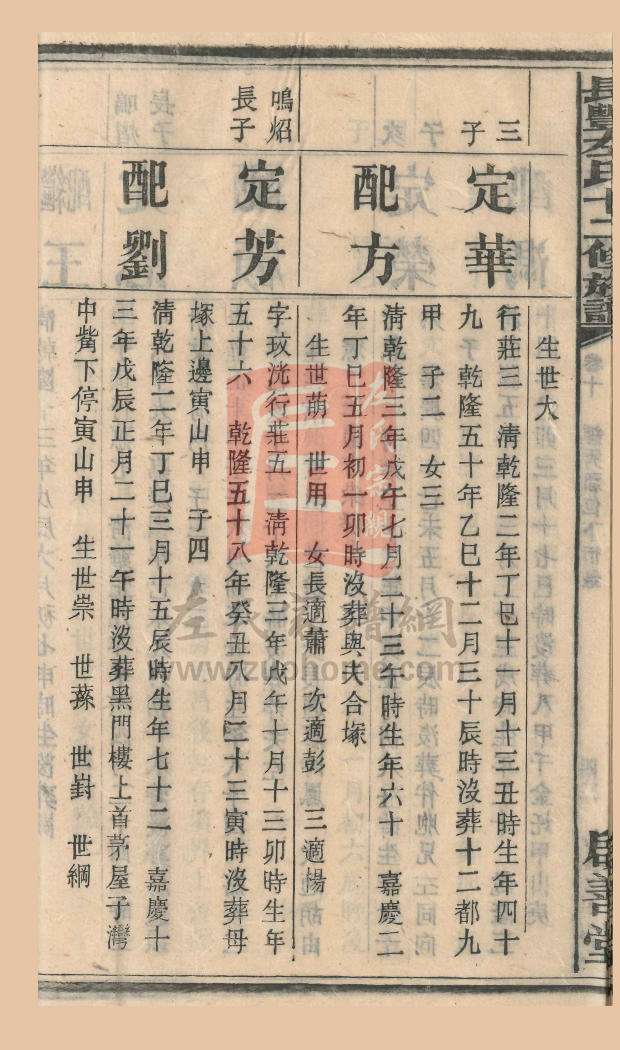 長豐左氏十二修族譜
卷十
啟善堂
生世大
三子
定華
行莊三五 清乾隆二年丁巳十一月十三丑時生年四十
九 乾隆五十年乙巳十二月三十辰時沒葬十二都九
甲 子二 女三
配方
清乾隆三年戊午七月二十三午時生年六十 嘉慶二
年丁巳五月初一卯時沒葬與夫合塚
生世萌 世用 女長適蕭 次適彭 三適楊
鳴炤
長子
定芳
字玟洸行莊五 清乾隆三年戊午十月十三卯時生年
五十六 乾隆五十八年癸丑八月二十三寅時沒葬母
塚上邊寅山申 子四
配劉
清乾隆二年丁巳三月十五辰時生年七十二 嘉慶十
三年戊辰正月二十一午時沒葬黑門樓上首茅屋子灣
中觜下停寅山申 生世崇 世蓀 世對 世綱
左氏家譜網
www.zuohome.com